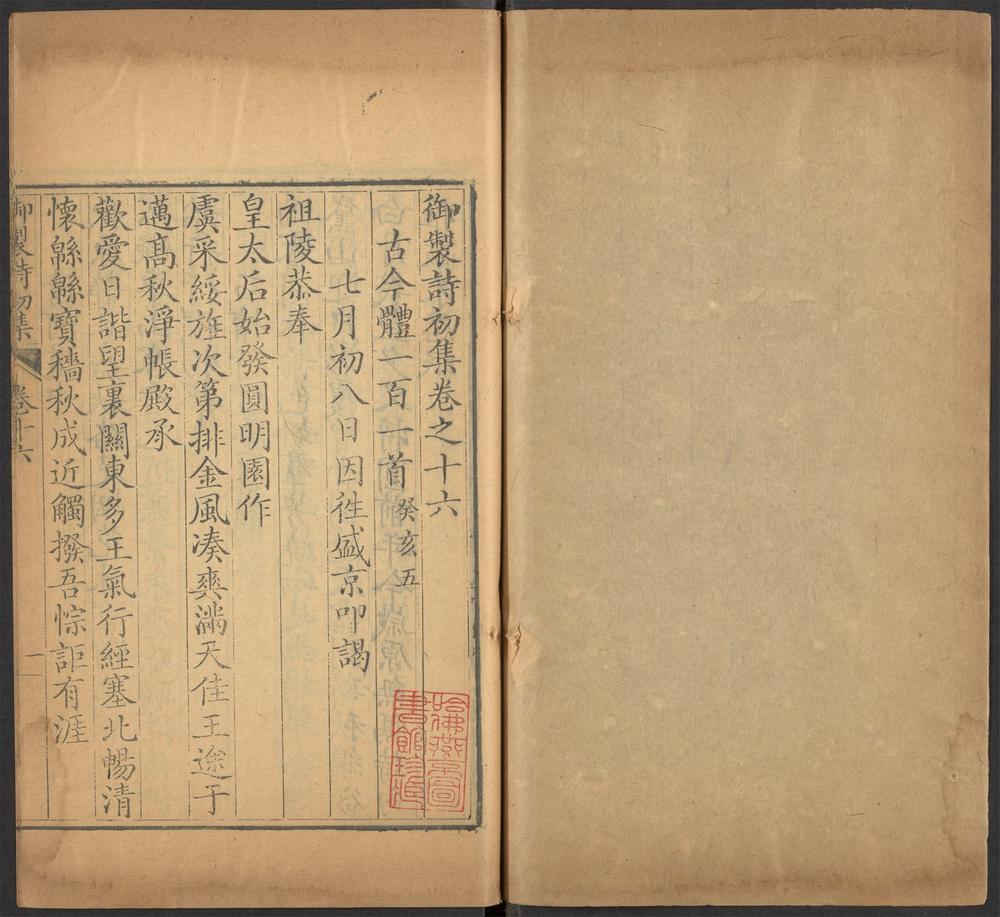 御製詩初集卷之十六
古今體一百一首癸亥五
七月初八日因徃盛京叩謁
祖陵恭奉
皇太后始發圓明園作
虞采綏旌次第排金風凑爽滿天佳王途于
邁髙秋淨帳殿承
歡愛日諧望裏關東多王氣行經塞北暢清
懷緜緜寶穡秋成近觸撥吾悰詎有涯
御製詩初集 卷十六 一
哈佛燕京圖
書館珍藏